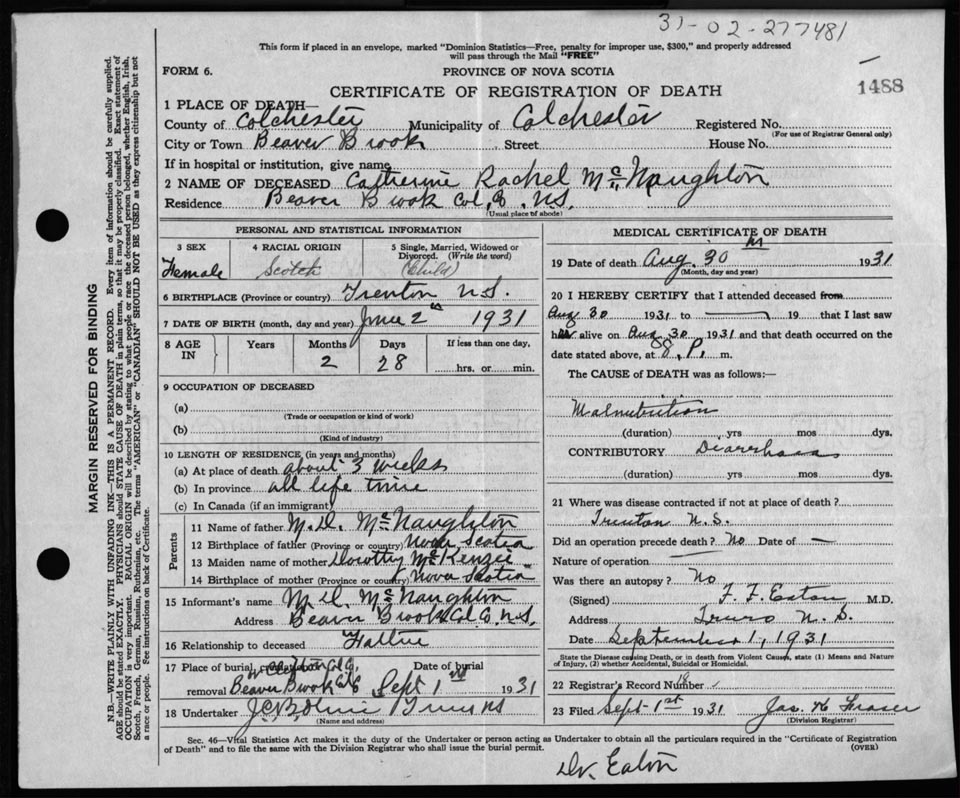 31-02-277481
This form if placed in an envelope, marked "Dominion Statistics—Free, penalty for improper use, $300," and properly addressed
will pass through the Mail "FREE"
FORM 6.
PROVINCE OF NOVA SCOTIA
1488
CERTIFICATE OF REGISTRATION OF DEATH
1 PLACE OF DEATH—
County of Colchester Municipality of Colchester Registered No.
(For use of Registrar General only)
City or Town Beaver Brook Street House No.
If in hospital or institution, give name
2 NAME OF DECEASED Catherine Rachel McNaughton
Residence Beaver Brook Col. Co. N.S.
(Usual place of abode)
PERSONAL AND STATISTICAL INFORMATION
3 SEX 4 RACIAL ORIGIN 5 Single, Married, Widowed or
Divorced. (Write the word)
Female Scotch (Child)
6 BIRTHPLACE (Province or country) Trenton N.S.
7 DATE OF BIRTH (month, day and year) June 2 1931
8 AGE IN Years Months Days If less than one day,
2 28 hrs. or min.
9 OCCUPATION OF DECEASED
(a)
(Trade or occupation or kind of work)
(b)
(Kind of industry)
10 LENGTH OF RESIDENCE (in years and months)
(a) At place of death about 3 weeks
(b) In province all life time
(c) In Canada (if an immigrant)
Parents
11 Name of father M. D. McNaughton
12 Birthplace of father (Province or country) Nova Scotia
13 Maiden name of mother Dorothy McKenzie
14 Birthplace of mother (Province or country) Nova Scotia
15 Informant's name M. D. McNaughton
Address Beaver Brook Col Co N.S.
16 Relationship to deceased Father
17 Place of burial, Date of burial
removal Beaver Brook Col Co Sept 1st 1931
18 Undertaker
(Name and address)
MEDICAL CERTIFICATE OF DEATH
19 Date of death Aug. 30 1931
(Month, day and year)
20 I HEREBY CERTIFY that I attended deceased from
Aug 30 1931 to 19 that I last saw
her alive on Aug 30 1931 and that death occurred on the
date stated above, at 8 P. m.
The CAUSE of DEATH was as follows:—
Malnutrition
(duration) yrs mos dys.
CONTRIBUTORY Diarrhoea
(duration) yrs mos dys.
21 Where was disease contracted if not at place of death?
Trenton N.S.
Did an operation precede death? No Date of —
Nature of operation —
Was there an autopsy? No
(Signed) F. F. Eaton M.D.
Address Truro N.S.
Date September 1, 1931
State the Disease causing Death, or in death from Violent Causes, state (1) Means and Nature
of Injury, (2) whether Accidental, Suicidal or Homicidal.
22 Registrar's Record Number 18
23 Filed Sept 1st 1931 Jas. H Fraser
(Division Registrar)
Sec. 46—Vital Statistics Act makes it the duty of the Undertaker or person acting as Undertaker to obtain all the particulars required in the "Certificate of Registration
of Death" and to file the same with the Division Registrar who shall issue the burial permit.
(OVER)
Dr. Eaton
MARGIN RESERVED FOR BINDING
N.B.—WRITE PLAINLY WITH UNFADING INK—THIS IS A PERMANENT RECORD. Every item of information should be carefully supplied.
AGE should be stated EXACTLY. PHYSICIANS should STATE CAUSE OF DEATH in plain terms, so that it may be properly classified. Exact statement of
OCCUPATION is very important. RACIAL ORIGIN will be described by stating to what people or race the deceased person belonged, whether English, Irish,
Scotch, French, German, Russian, Ruthenian, etc. The terms "AMERICAN" or "CANADIAN" SHOULD NOT BE USED as they express citizenship but not
a race or people. See instructions on back of Certificate.